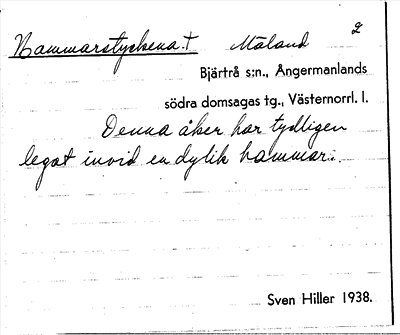 Hammarstyckena † Måland 2
Bjärtrå s:n., Ångermanlands
södra domsagas tg., Västernorrl. l.
Denna åker har tydligen
legat invid en dylik hammar.
Sven Hiller 1938.